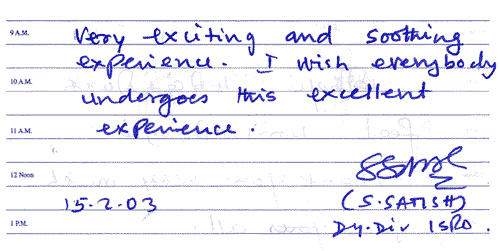 9 A.M.
Very exciting and soothing
experience. I wish everybody
10 A.M.
undergoes this excellent
11 A.M.
experience.
12 Noon
15.2.03
(S. SATISH)
1 P.M.
Dy. Div ISRO.